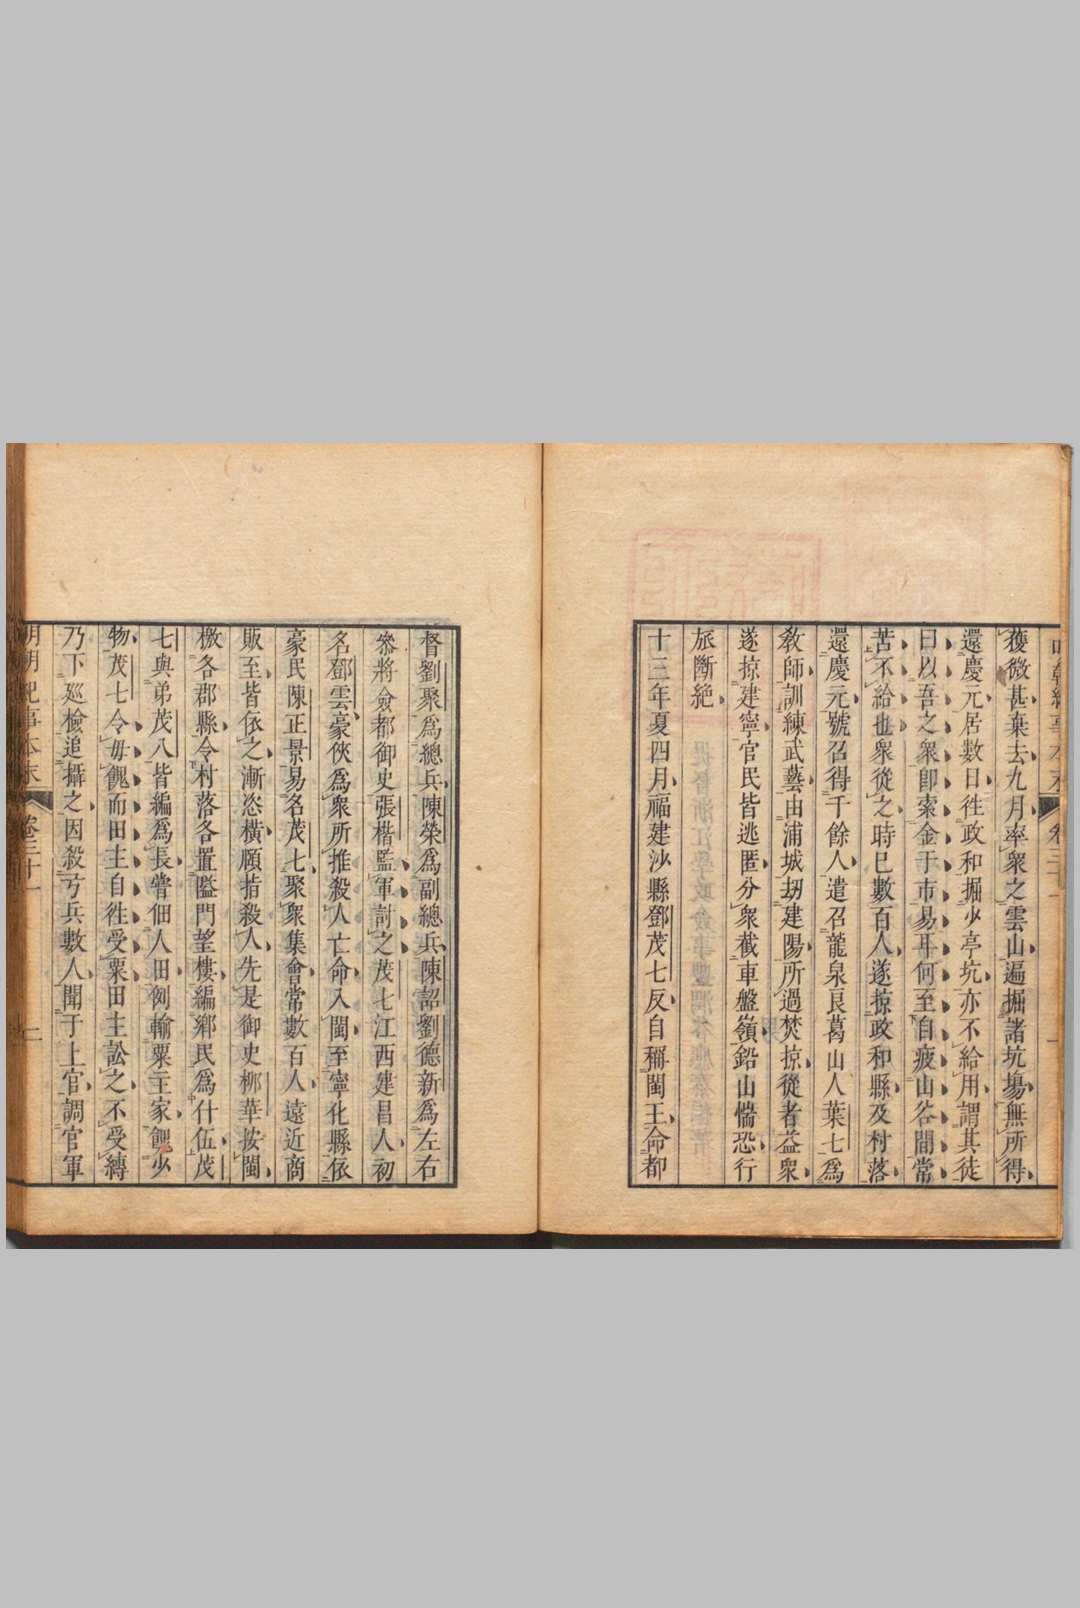 獲微甚棄去九月率衆之雲山遍掘諸坑塲無所得
還慶元居數日徃政和掘少亭坑亦不給用謂其徒
曰以吾之衆卽索金于市易耳何至自疲山谷間常
苦不給也衆從之時巳數百人遂掠政和縣及村落
還慶元號召得千餘人遣召龍泉良葛山人葉七爲
敎師訓練武藝由浦城刧建陽所過焚掠從者益衆
遂掠建寧官民皆逃匿分衆截車盤嶺鉛山惴恐行
旅斷絶
十三年夏四月福建沙縣鄧茂七反自稱閩王命都
督劉聚爲總兵陳榮爲副總兵陳詔劉德新爲左右
參將僉都御史張楷監軍討之茂七江西建昌人初
名鄧雲豪俠爲衆所推殺人亡命入閩至寧化縣依
豪民陳正景易名茂七聚衆集會常數百人遠近商
販至皆依之漸恣橫頤指殺人先是御史柳華按閩
檄各郡縣令村落各置隘門望樓編鄉民爲什伍茂
七與弟茂八皆編爲長甞佃人田例輸粟主家餽少
物茂七令毋餽而田主自徃受粟田主訟之不受縛
乃下廵檢追攝之因殺弓兵數人聞于上官調官軍
明朝紀事本末 卷三十一